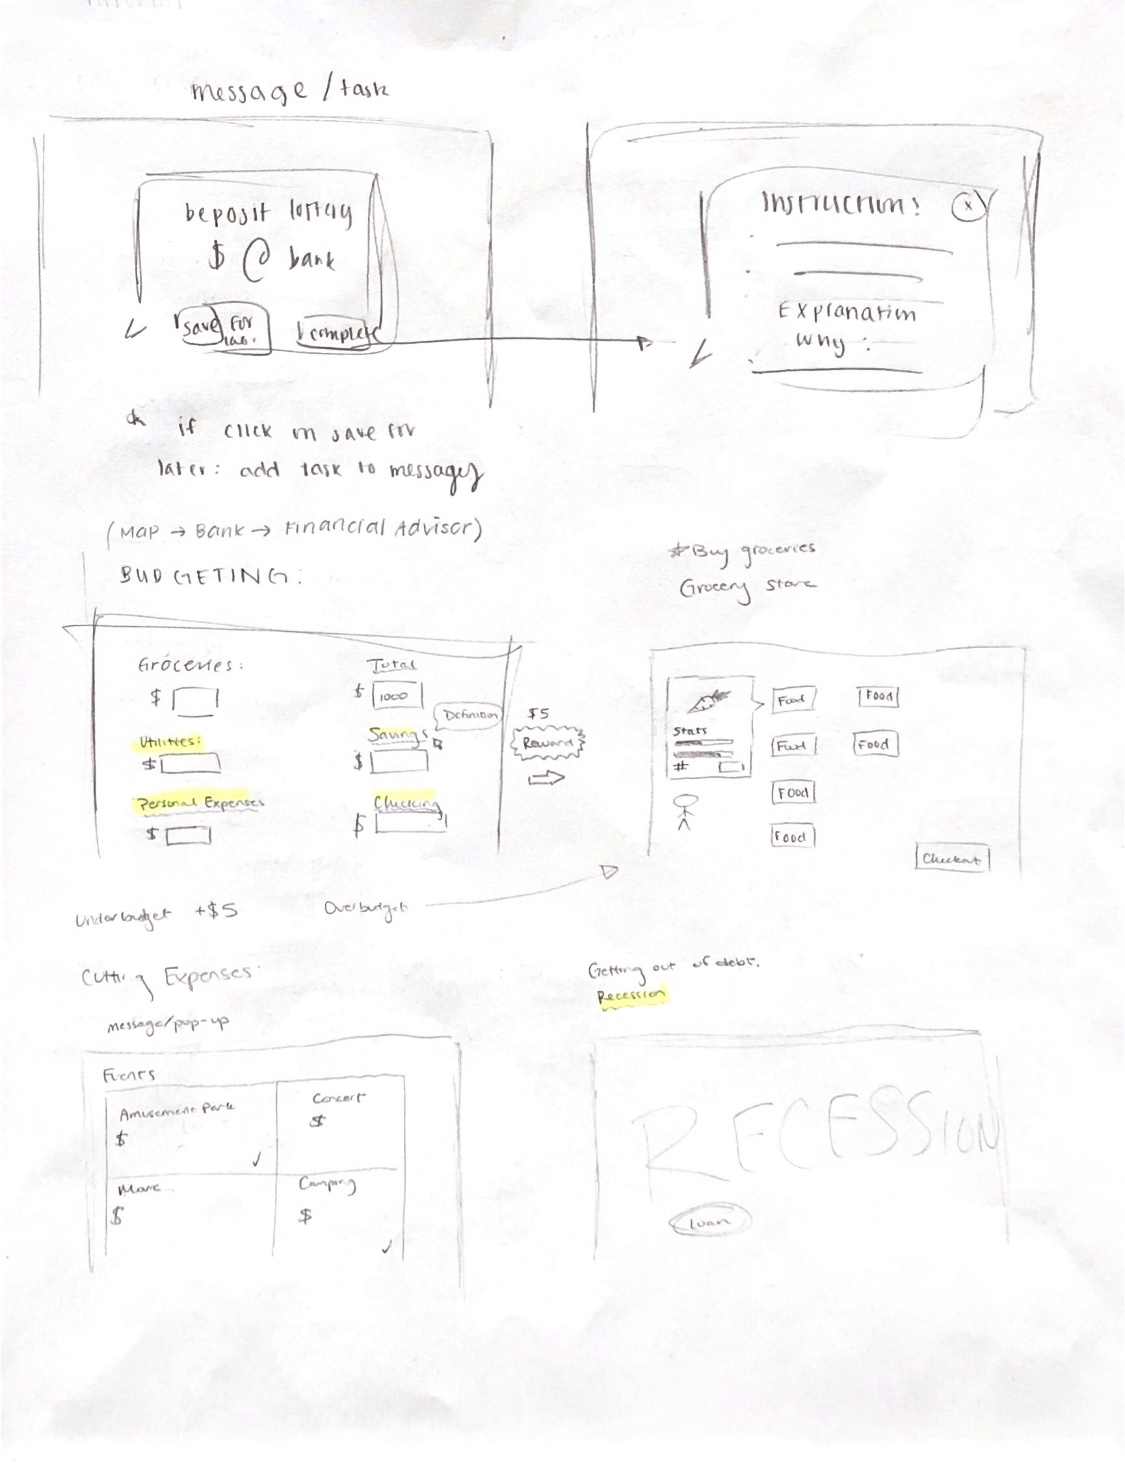 message / task
Deposit lottery
$ @ bank
save for
complete
Instruction:
Explanation
why :
* if click on save for
later: add task to messages
(Map → Bank → Financial Advisor)
BUDGETING:
Groceries:
$
Total
$ 1000
Definition
Utilities:
$
Savings
$
Personal Expenses
$
Checking
$
$5
Reward
*Buy groceries
Grocery store
Stats
#
Food
Food
Food
Food
Food
Food
Checkout
Underbudget +$5
Overbudget
Cutting Expenses:
message/pop-up
Events
Amusement Park
$
Concert
$
Movie
$
Camping
$
Getting out of debt.
Recession
RECESSION
Loan